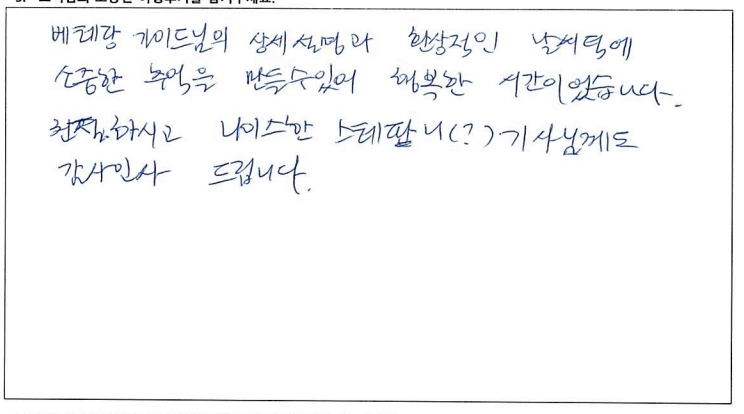 베테랑 가이드님의 상세설명과 환상적인 날씨덕에
소중한 추억을 만들수있어 행복한 시간이었습니다.
친절하시고 나이스한 스테판니(?)기사님께도
감사인사 드립니다.